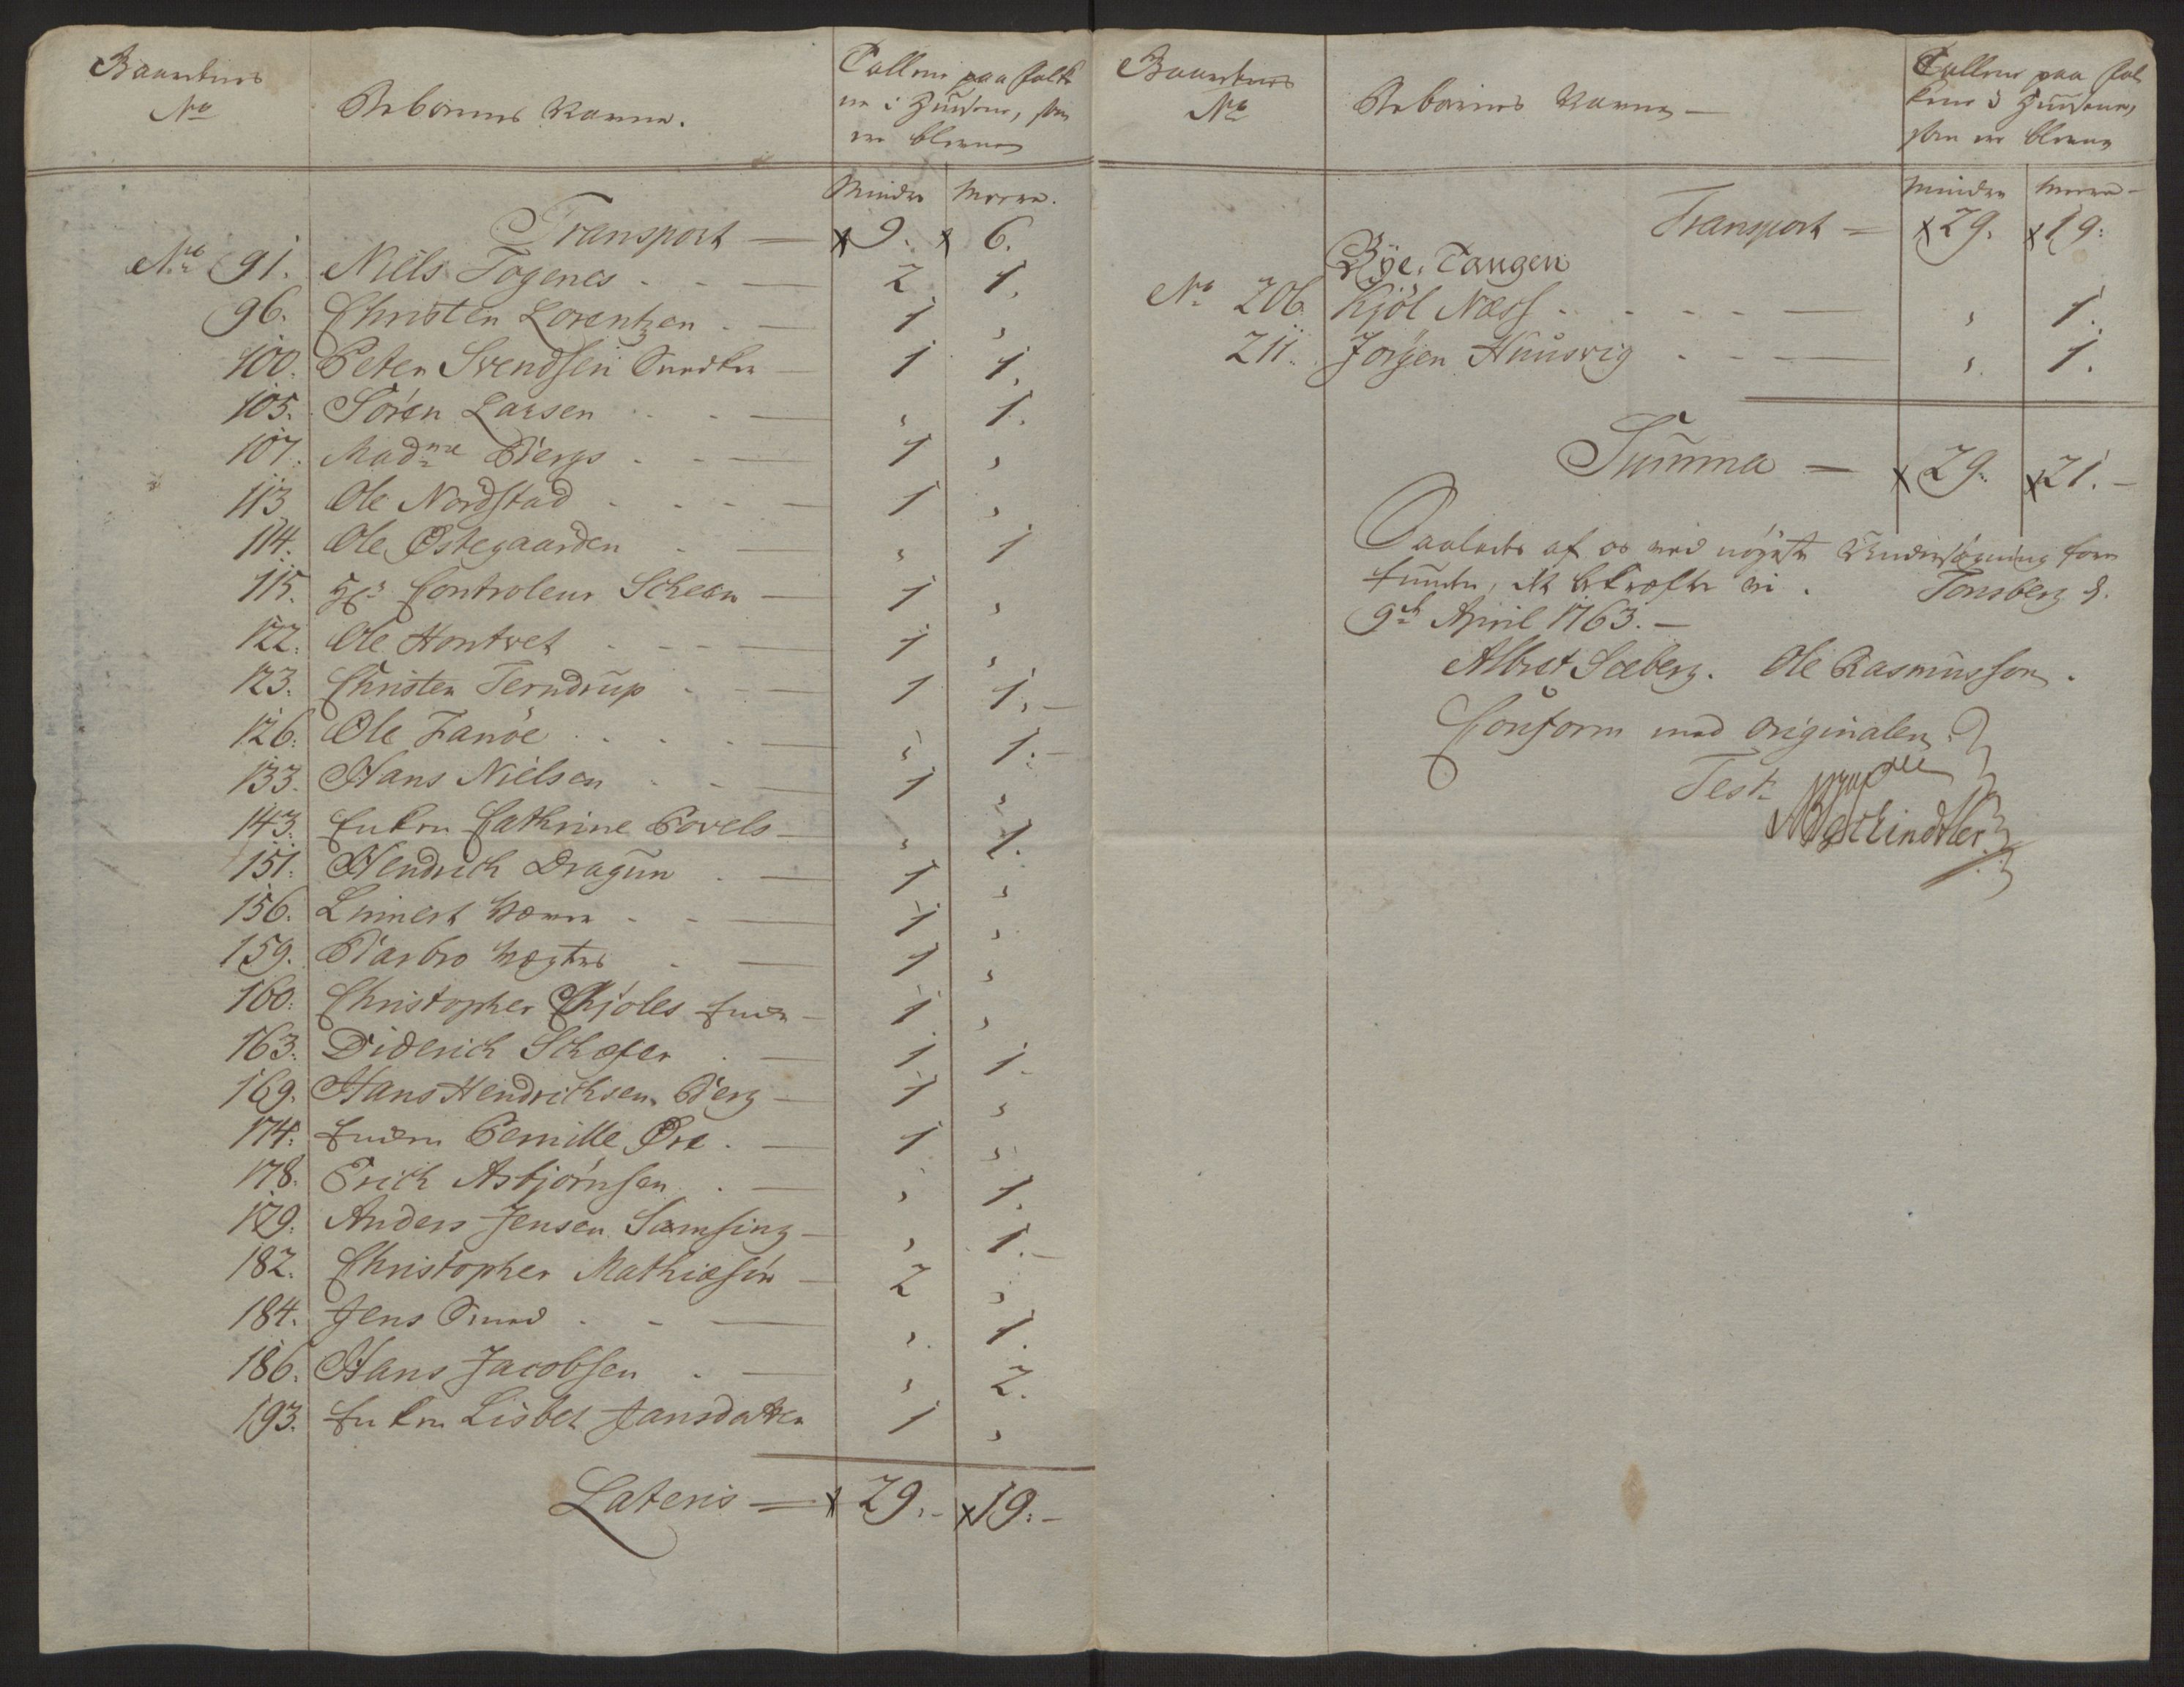 Gaardernes
No
Beboernes Navne.
Tallene paa Folke
ne i Huusene, som
ere blevne
Mindre Meere.
Transport — 9. 6.
No 91. Niels Togenes . . — 2 1.
96. Christen Lorentzen . — 1 "
100. Peter Svendsen Snedker — 1 1.
105. Sören Larsen . . — " 1.
107. Madme Bergs . . — 1 "
113 Ole Nordstad . . . — 1 "
114. Ole Østegaarden . — " 1
115. Hr Controleur Scheen — 1 "
122. Ole Hontvet . . . — 1 "
123. Christen Terndrup . . — 1 1. —
126. Ole Fanöe . . . . — " 1. —
133. Hans Nielsen . . — 1 "
143. Enken Cathrine Povels — " 1.
151. Hendrich Dragun . — 1 "
156. Linnert . . — 1 "
159. Barbro . — 1 "
160. Christopher Kjöles Enke — 1 "
163. Diderich Schæfer . — 1 1.
169. Hans Hendrichsen Berg — 1 "
174. Enken Pernille Øre . — 1 "
178. Erich Asbjörnsen . — " 1.
179. Anders Jensen Samsing — " 1. —
182. Christopher Mathiesön — 2 "
184. Jens Smed . . — " 1.
186. Hans Jacobsen . — " 2.
193. Enken Lisbet Jansdatter 1 "
Lateris = 29. — 19. —
No
Beboernes Navne —
Tallene paa Fol
kene i Huusene,
som ere blevne
Mindre Meere —
Transport = 29. 19:
Bye. Tangen
No 206 Kjöl Næss . . . . — " 1.
211. Jörgen Huusvig . . — " 1.
Summa — 29. 21. —
Saaledes af os ved nöyeste Undersögning for
funden, det bekræfter vi . Tonsberg d.
9de April 1763. —
Albret Seeberg. Ole Rasmussen .
Conform med Originalen
Test.